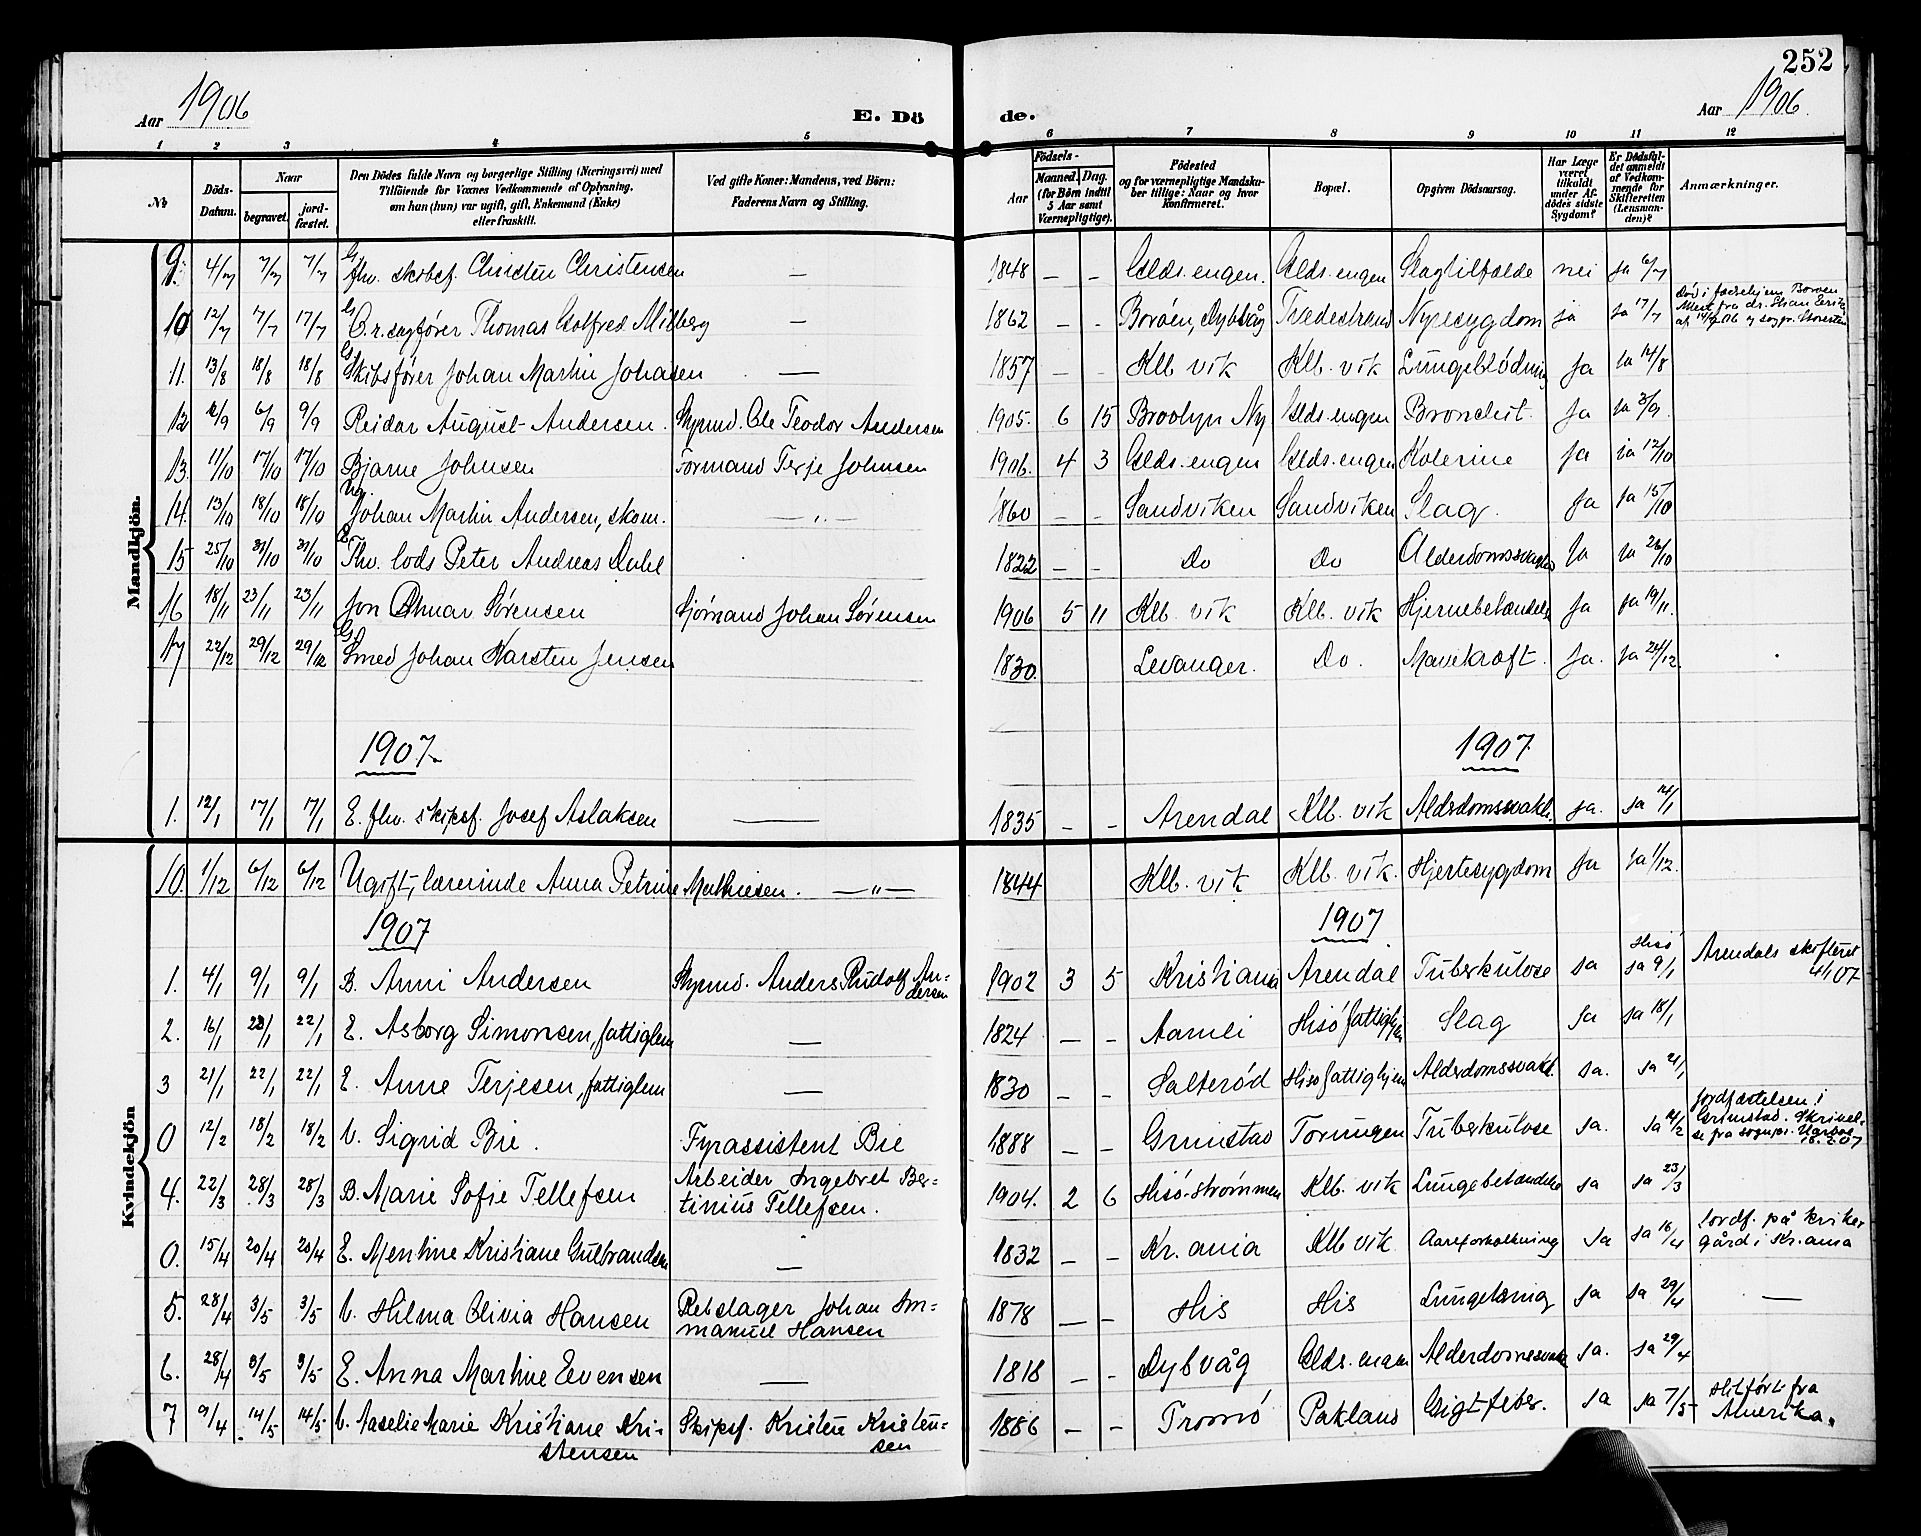 252
Aar 1906
E. Dö
de.
Aar 1906.
1 2 3 4 5 6 7 8 9 10 11 12
No
Döds-Datum.
Naar
begravet.
jord-fæstet.
Den Dödes fulde Navn og borgerlige Stilling (Næringsvei) med
Tilföiende for Voxnes Vedkommende af Oplysning,
om han (hun) var ugift, gift, Enkemand (Enke)
eller fraskilt.
Ved gifte Koner: Mandens, ved Börn:
Faderens Navn og Stilling.
Födsels-
Aar
Maaned. Dag.
(for Börn indtil
5 Aar samt
Værnepligtige).
Födested
og for værnepligtige Mandska-
ber tillige: Naar og hvor
Konfirmeret.
Bopæl.
Opgiven Dödsaarsag.
Har Læge
været
tilkaldt
under Af-
dödes sidste
Sygdom?
Er Dödsfal-
det anmeldt
af Vedkom-
mende for
Skifteretten
(Lensman-
den)?
Anmærkninger.
Mandkjön.
9. 4/7 7/7 7/7 G fhv. skibsf. Christen Christensen — 1848 — - Glds. engen. Glds. engen Slagtilfælde nei ja 6/7
10 12/7 17/7 17/7 G O.r.sagfører Thomas Gotfred Milberg — 1862 - - Borøen, Dybvåg Tvedestrand Nyresygdom ja ja 17/7
11. 13/8 18/8 18/8 G Skibsfører Johan Martin Johansen — 1857 - - Klb. vik Klb. vik Lungeblødning ja ja 14/8
12 2/9 6/9 9/9 Reidar August Andersen. Skypmd. Ole Teodor Andersen 1905. 6 15 Broolyn Ny Glds. engen Bronchit. ja ja 3/9.
13. 11/10 17/10 17/10 Bjarne Johnsen Formand Terje Johnsen 1906. 4 3 Glds. engen Glds. engen Kolerine ja ja 12/10
14. 13/10 18/10 18/10 Ug. Johan Martin Andersen, skom. — „ — 1860 - - Sandviken Sandviken Slag. ja ja 15/10
15 25/10 31/10 31/10 E Fhv. lods Peter Andreas Dahl 1822 — - Do Do Alderdomssvakhed ja ja 26/10
16 18/11 23/11 23/11 Jon Sørensen Sjømand Johan Sørensen 1906 5 11 Klb. vik Klb. vik Hjernebetændelse ja ja 19/11.
17 22/12 29/12 29/12 G Smed Johan Karsten Jensen 1830. Levanger. Do. Mavekræft. ja. ja 24/12.
1907. 1907
1. 12/1 17/1 17/1 E. fhv. skipsf. Josef Aslaksen — 1835 - - Arendal Klb. vik Alderdomssvakh. ja. ja 14/1
Kvindekjön
10. 1/12 6/12 6/12 Ugift, lærerinde Anna Petrine Mathiesen. — „ — 1844 Klb. vik Klb. vik. Hjertesygdom ja ja 1/12.
1907 1907
1. 4/1 9/1 9/1 B. Anni Andersen Skypmd. Anders Rudolf An-
dersen 1902 3 5 Kristiania Arendal Tuberkulose ja Hisö ja 9/1 Arendals skifteret
4/1 07
2. 16/1 22/1 22/1 E. Asborg Simonsen, fattiglem — 1824 - - Aamli Hisö fattighjem Slag ja ja 18/1
3 21/1 22/1 22/1 E. Anne Terjesen, fattiglem — 1830 - - Salterød Hisö fattighjem Alderdomssvakh. ja. ja 21/1
0 12/2 18/2 18/2 U. Sigrid Bie. Fyrassistent Bie 1888 - - Grimstad Torungen Tuberkulose ja. ja 14/2 Jordfæstelsen i
Grimstad. Skrivel-
se fra sognpr.
18.2.07
4. 22/3 28/3 28/3 B. Marie Sofie Tellefsen Arbeider Ingebret Ber-
tinius Tellefsen. 1904. 2 6 Hisö-Strømmen Klb. vik Lungebetændelse ja ja 23/3
0. 15/4 20/4 20/4 E. Mentine Kristiane Gulbrandsen — 1832 - - Kr.ania Klb vik Aareforkalkning ja ja 16/4 Jordf. på kirke-
gård i Kr.ania
5. 28/4 3/5 3/5 U. Hilma Olivia Hansen Rebslager Johan Im-
manuel Hansen 1878 — - His His Lungetæring ja ja 29/4 —
6. 28/4 3/5 3/5 E. Anna Martine Evensen — 1818 - - Dybvåg Glds. engen Alderdomssvakh ja. ja 29/4
7 9/4 14/5 14/5 U. Aaselie Marie Kristiane Kri-
stensen Skipsf. Kristen Kristen-
sen 1886 - - Tromö Pakland Gigtfeber. ja ja 7/5 Hitført fra
Amerika.